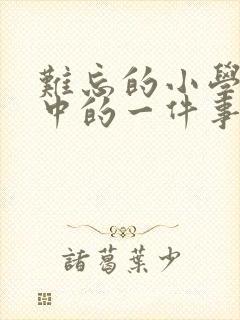 難忘的小學
中的一件事
諸葛葉少